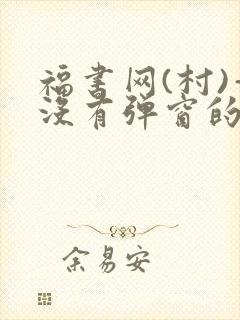 福书网(村)-
没有弹窗的
余易安